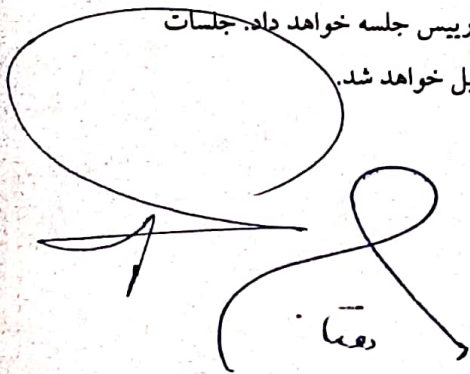 رییس جلسه خواهد داد. جلسات
یل خواهد شد.